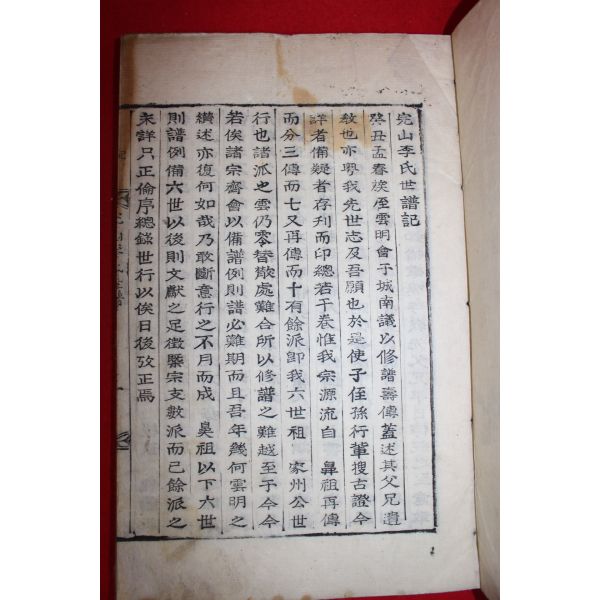 完山李氏世譜記
癸丑孟春族侄雲明會于城南議以修譜壽傳蓋述其父兄遺
敎也亦學我先世志及吾願也於是使子侄孫行輩搜古證今
詳者備疑者存刋而印總若干卷惟我宗源流自 鼻祖再傳
而分三傳而七又再傳而十有餘派卽我六世祖 家州公世
行也諸派之雲仍零替散處難合所以修譜之難越至于今今
若俟諸宗齊會以備譜例則譜必難期而且吾年幾何雲明之
纘述亦復何如哉乃敢斷意行之不月而成 鼻祖以下六世
則譜例備六世以後則文獻之足徵槩宗支數派而已餘派之
未詳只正倫序總錄世行以俟日後攷正焉